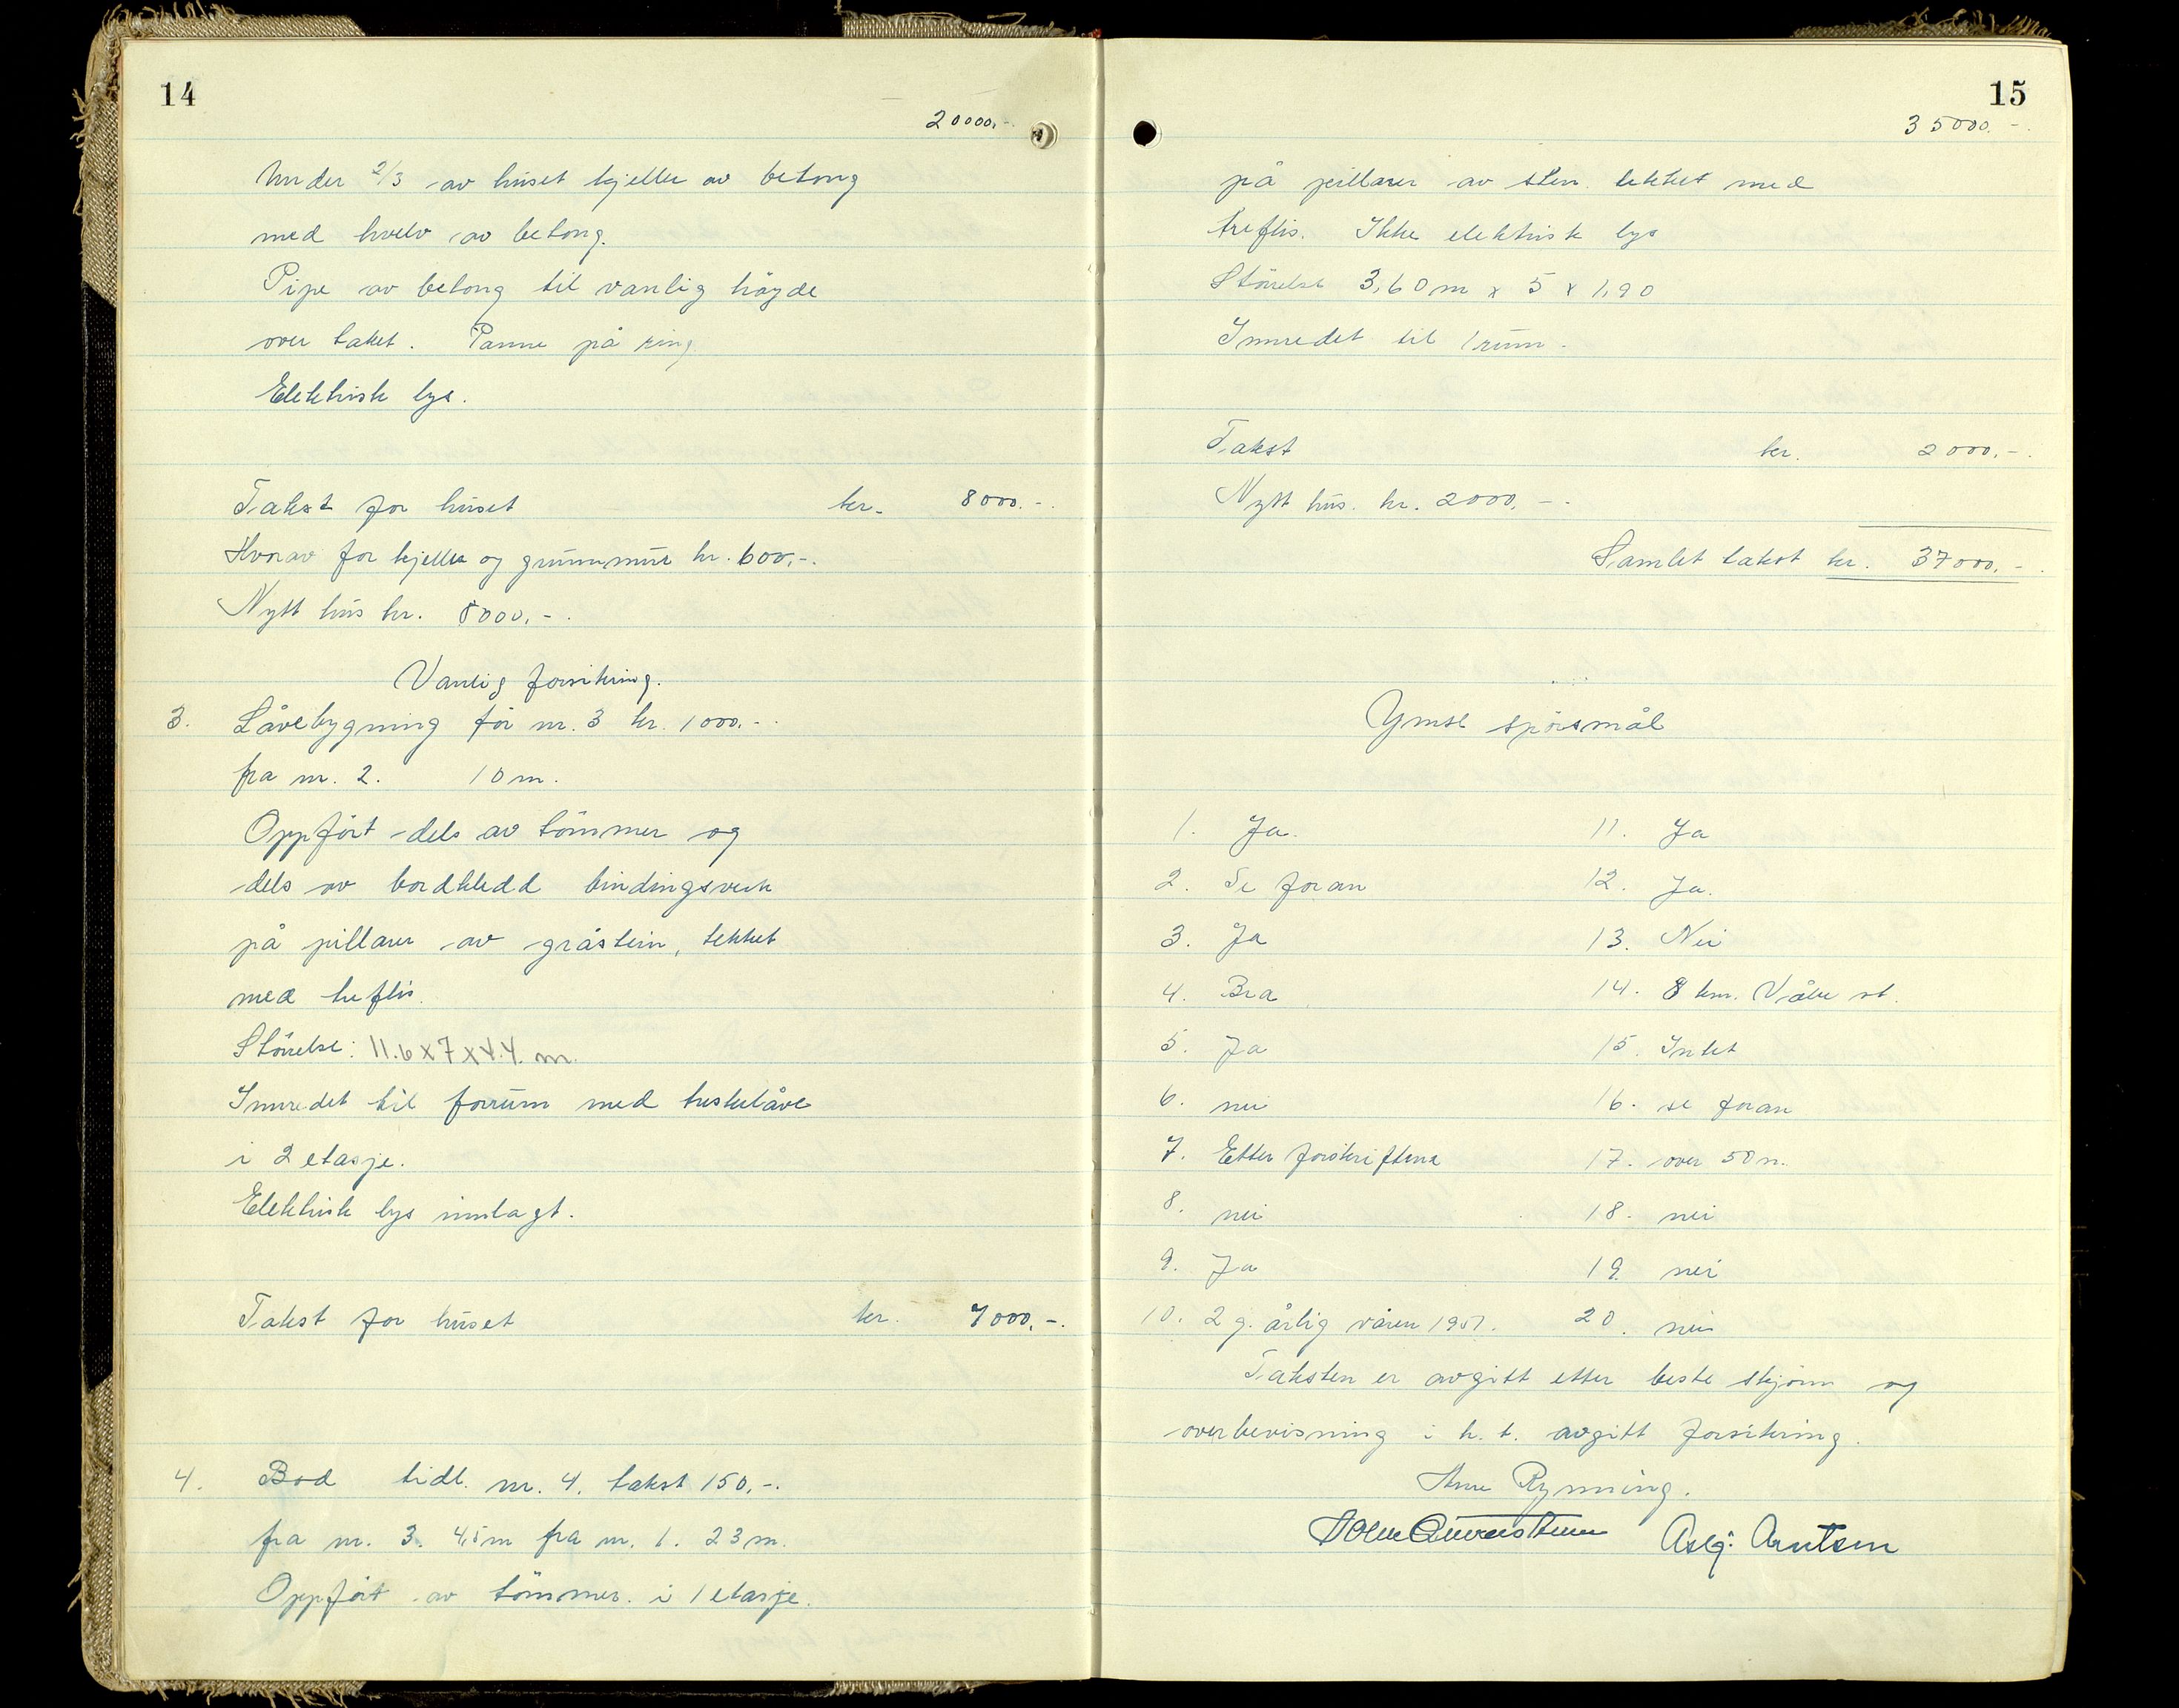 14
20000.-
Under 2/3 av huset kjeller av betong
med hvelv av betong.
Pipe av betong til vanlig höyde
over taket. Panne på ring
Elektrisk lys.
Takst for huset kr. 8000.-.
Hvorav for kjeller og grunnmur kr. 600,-.
Nytt hus kr. 8000,-.
Vanlig forsikring.
3. Låvebygning för nr. 3 kr. 1000.-.
fra nr. 2. 10 m.
Oppfört dels av tömmer og
dels av bordkledd bindingsverk
på pillarer av gråstein, tekket
med treflis.
Störrelse: 11.6 x 7 x 4.4. m.
Innredet til forrum med treskelåve
i 2 etasje.
Elektrisk lys innlagt.
Takst for huset kr. 7000,-.
4. Bod tidl. nr. 4. takst 150,-.
fra nr. 3. 4,5m fra nr. 1. 23 m.
Oppfört av tömmer i 1 etasje.
15
35000.-.
på pillarer av sten tekket med
treflis. Ikke elektrisk lys
Störrelse 3,60 m x 5 x 1,90
Innredet til 1 rum.
Takst kr. 2000,-.
Nytt hus. kr. 2000,-.
Samlet takst kr. 37000,-.
Ymse spörsmål
1. Ja. 11. Ja
2. Se foran 12. Ja.
3. Ja 13. Nei
4. Bra 14. 8 km. Våler st.
5. Ja 15. Intet
6. nei 16. se foran
7. Etter forskriftene 17. over 50 m.
8. nei 18. nei
9. Ja 19. nei
10. 2 g. årlig våren 1951. 20. nei
Taksten er avgitt etter beste skjönn og
overbevisning i h. t. avgitt forsikring.
Arne Rynning.
Aslg. Arntsen